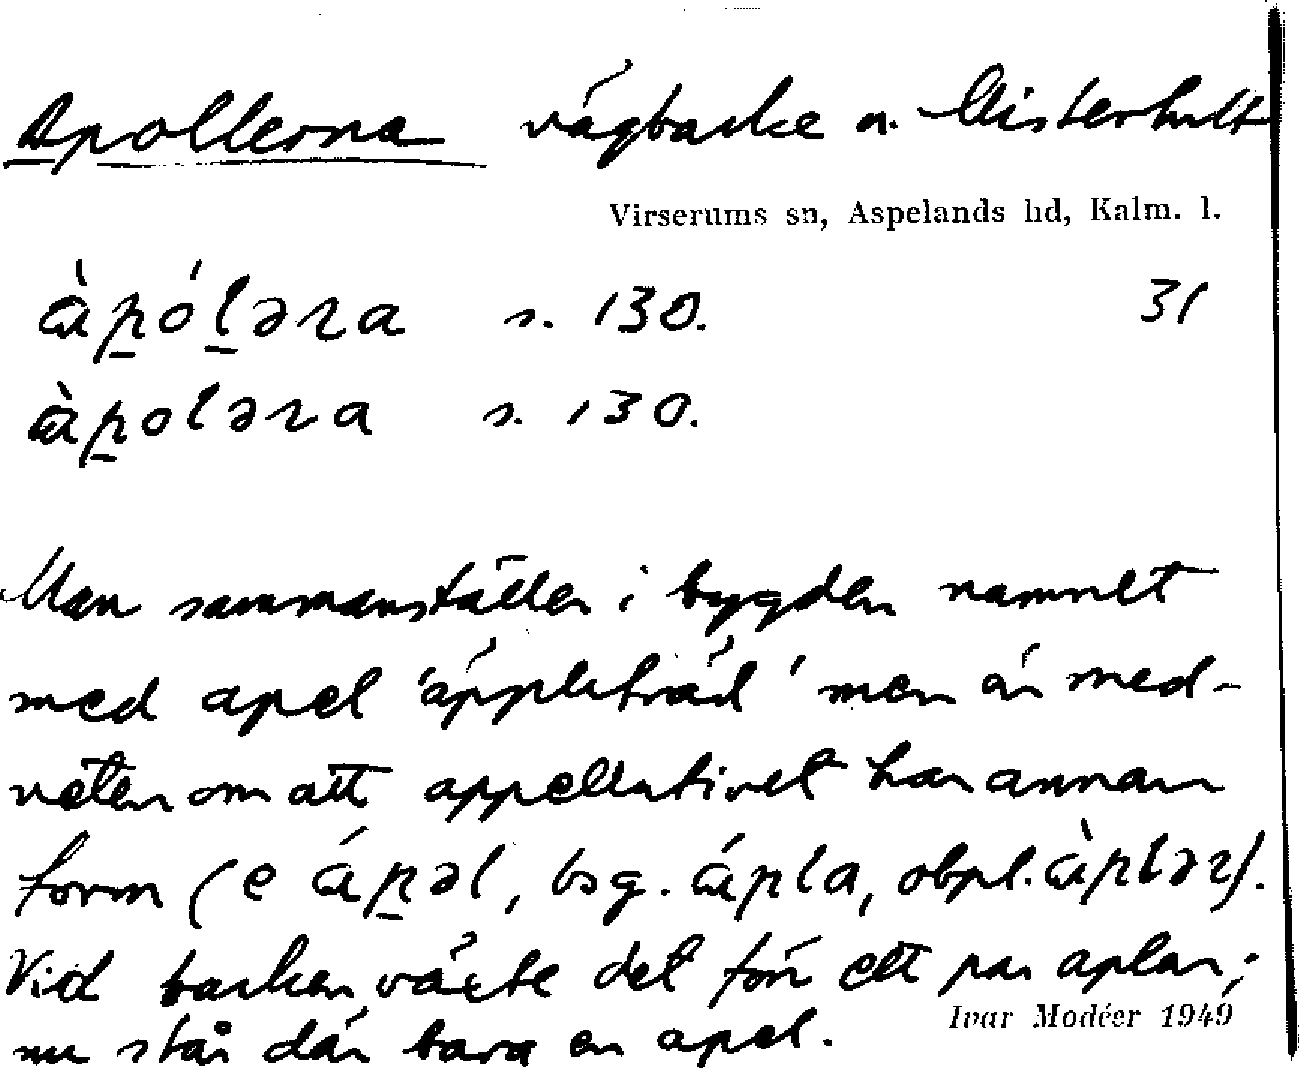 Apollerna vägbacke n. Misterhult
Virserums sn, Aspelands hd, Kalm. l.
àpóləra s. 130. 31
àpoləra s. 130.
Man sammanställer i bygden namnet
med apel 'äppleträd' men är med-
veten om att appellativet har annan
form (e ápəl, bsg. ápla, obpl. àpləɿ).
Vid backen växte det förr ett par aplar;
nu står där bara en apel.
Ivar Modéer 1949